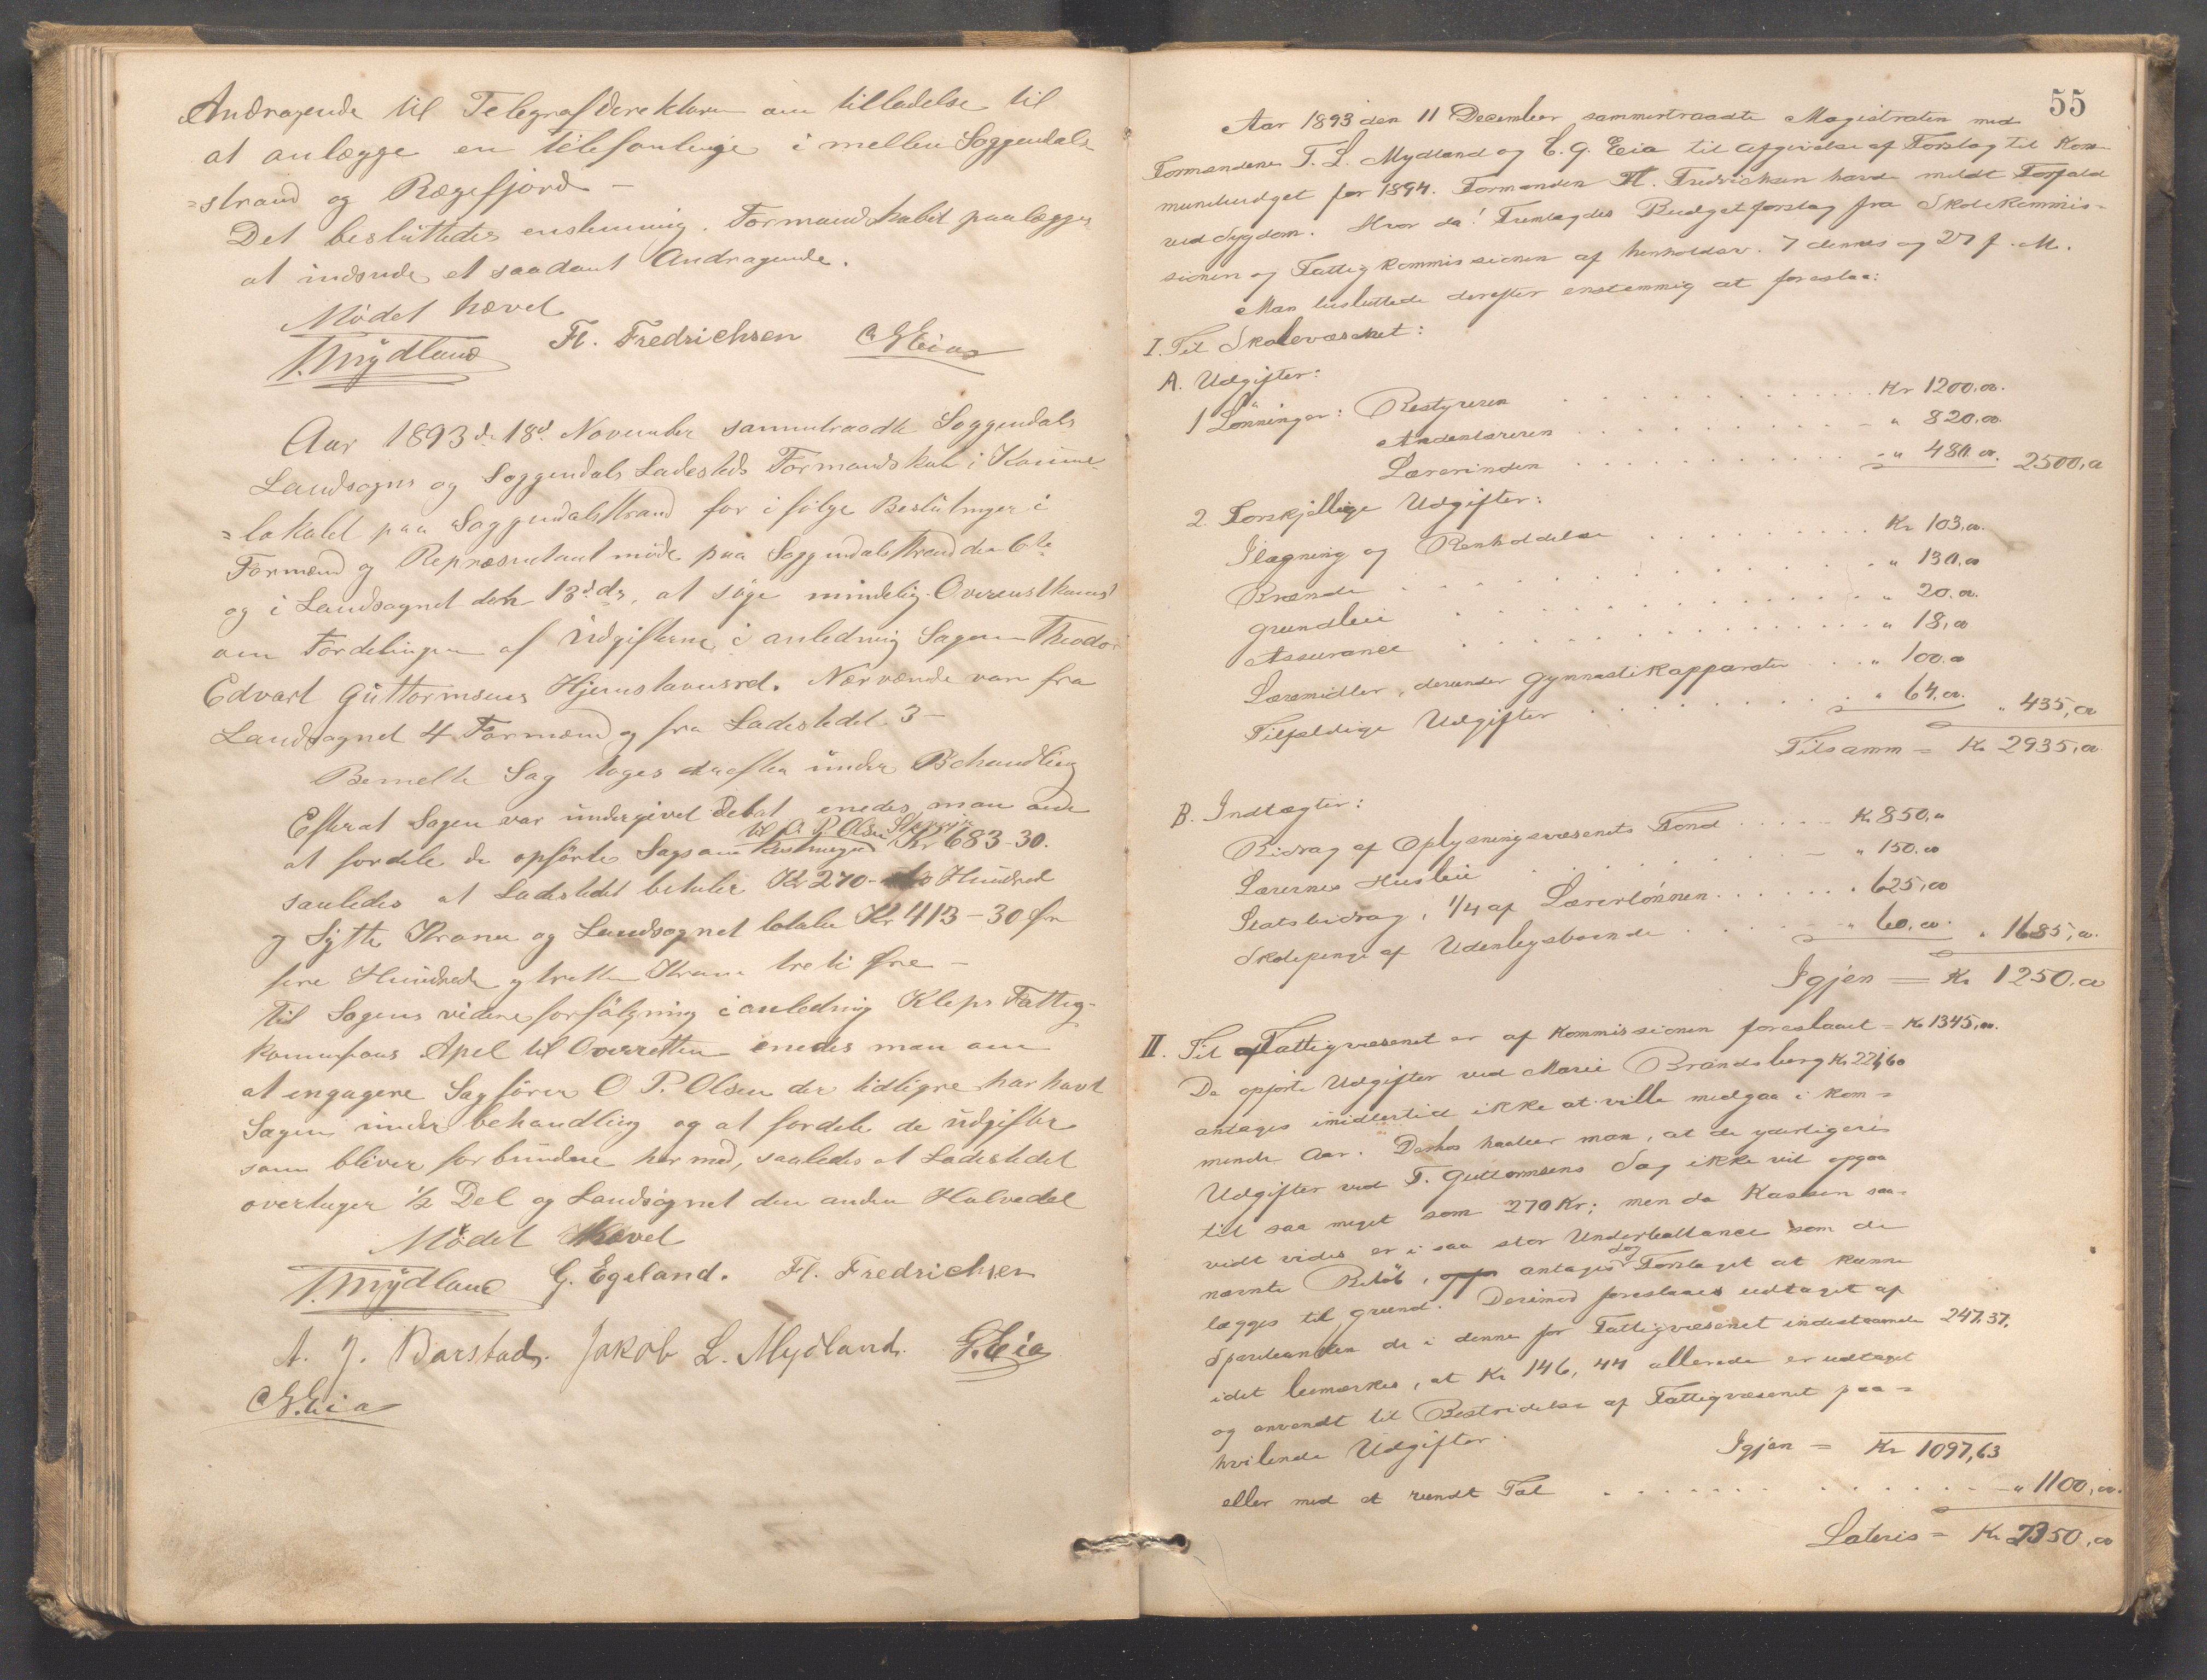 Andragende til Telegrafderektøren om tilladelse til
at anlægge en telefonlinje i mellem Soggendals-
=strand og Rægefjord –
Det besluttedes enstemmig. Formandskabet paalægges
at indsende et saadant Andragende.
Mødet hævet
T. Mydland Fl. Fredrichsen C. G. Eia
Aar 1893 de 18d November sammentraadte Soggendals
Landsogns og Soggendals Ladesteds Formandskab i Komune-
=lokalet paa Soggendalsstrand for i følge Beslutninger i
Formænd og Repræsentant møde paa Soggendalsstrand den 6te
og i Landsognet den 13de ds, at søge mindelig Overenskomst
om Fordelingen af Udgifterne i anledning Sagen Theodor
Edvart Guttormsens Hjemstavnsret. Nærværende var fra
Landsognet 4 Formænd og fra Ladestedet 3 –
Bemelte Sag toges derefter under Behandling
Efterat Sagen var undergivet Debat enedes man om
til O. P. Olsen
at fordele de opførte Sagsom Kr 683-30.
saaledes at Ladestedet betaler Kr 270 – to Hundred
og Sytti Kroner og Landsognet betaler Kr 413 – 30 Øre
fire Hundrede og tretten Kroner treti Øre –
Til Sagens videre forfølgning i anledning Kleps Fattig-
komisjons Apel til Overretten enedes man om
at engagere Sagfører O P. Olsen der tidligere har havt
Sagen under behandling og at fordele de udgifter
som bliver forbundene her med, saaledes at Ladestedet
overtager 1/2 Del og Landsognet den anden Halvedel
Mødet Hævet
T. Mydland G. Egeland. Fl. Fredrichsen
A. J. Barstad. Jakob L. Mydland. G. Eia
C. G. Eia
55
Aar 1893 den 11 December sammentraadte Magistraten med
Formændene T. L. Mydland og C. G. Eia til Afgivelse af Forslag til Kom-
munebudget for 1894. Formanden Fl. Fredrichsen havde meldt Forfald
ved Sygdom. Hvor da! Fremlagdes Budgetforslag fra Skolekommis-
sionen og Fattigkommissionen af henholdsv. 7 dennes og 27 f. M.
Man besluttede derefter enstemmig at foreslaa:
I. Til Skolevæsenet:
A. Udgifter:
1 Lønninger: Bestyreren . . . . . . . . Kr 1200,00.
Andenlæreren . . . . . . . . " 820,00.
Lærerinden . . . . . . . . " 480.00. 2500,00
2. Forskjellige Udgifter:
Ilægning og Renholdelse . . . . . . Kr 103,00.
Brænde . . . . . . . . " 130,00
Grundleie . . . . . . . . " 20.00.
Assurance . . . . . . . . " 18,00
Læremidler, derunder Gymnastikapparater . . . " 100.00
Tilfældige Udgifter . . . . . . . " 64.00. " 435,00
Tilsamm = Kr 2935,00.
B. Indtægter:
Bidrag af Oplysningsvæsenets Fond . . . . Kr 850,00
Lærernes Husleie . . . . . . " 150.00
Statsbidrag, 1/4 af Lærerlønnen . . . . . . 625,00
Skolepenge af Udenbysboende . . . . . " 60,00. " 1685,00.
Igjen = Kr 1250.00
II. Til Fattigvæsenet er af Kommissionen foreslaaet = Kr 1345,00.
De opførte Udgifter ved Marie Brandsberg Kr 221,60
antages imidlertid ikke at ville medgaa i kom-
mende Aar. Derhos haaber man, at de yderligere
Udgifter ved T. Guttormsens Sag ikke vil opgaa
til saa meget som 270 Kr; men da Kassen saa-
vidt vides er i saa stor Underballance som de
nævnte Beløb, antages dog Forslaget at kunne
lægges til Grund. Derimod foreslaaes udtaget af
Sparebanken de i denne for Fattigvæsenet indestaaende 247.37.
idet bemærkes, at Kr 146,44 allerede er udtaget
og anvendt til Bestridelse af Fattigvæsenet paa-
hvilende Udgifter. Igjen = Kr 1097,63
eller med et rundt Tal . . . . . . . . " 1100,00.
Lateris = Kr 2350,00